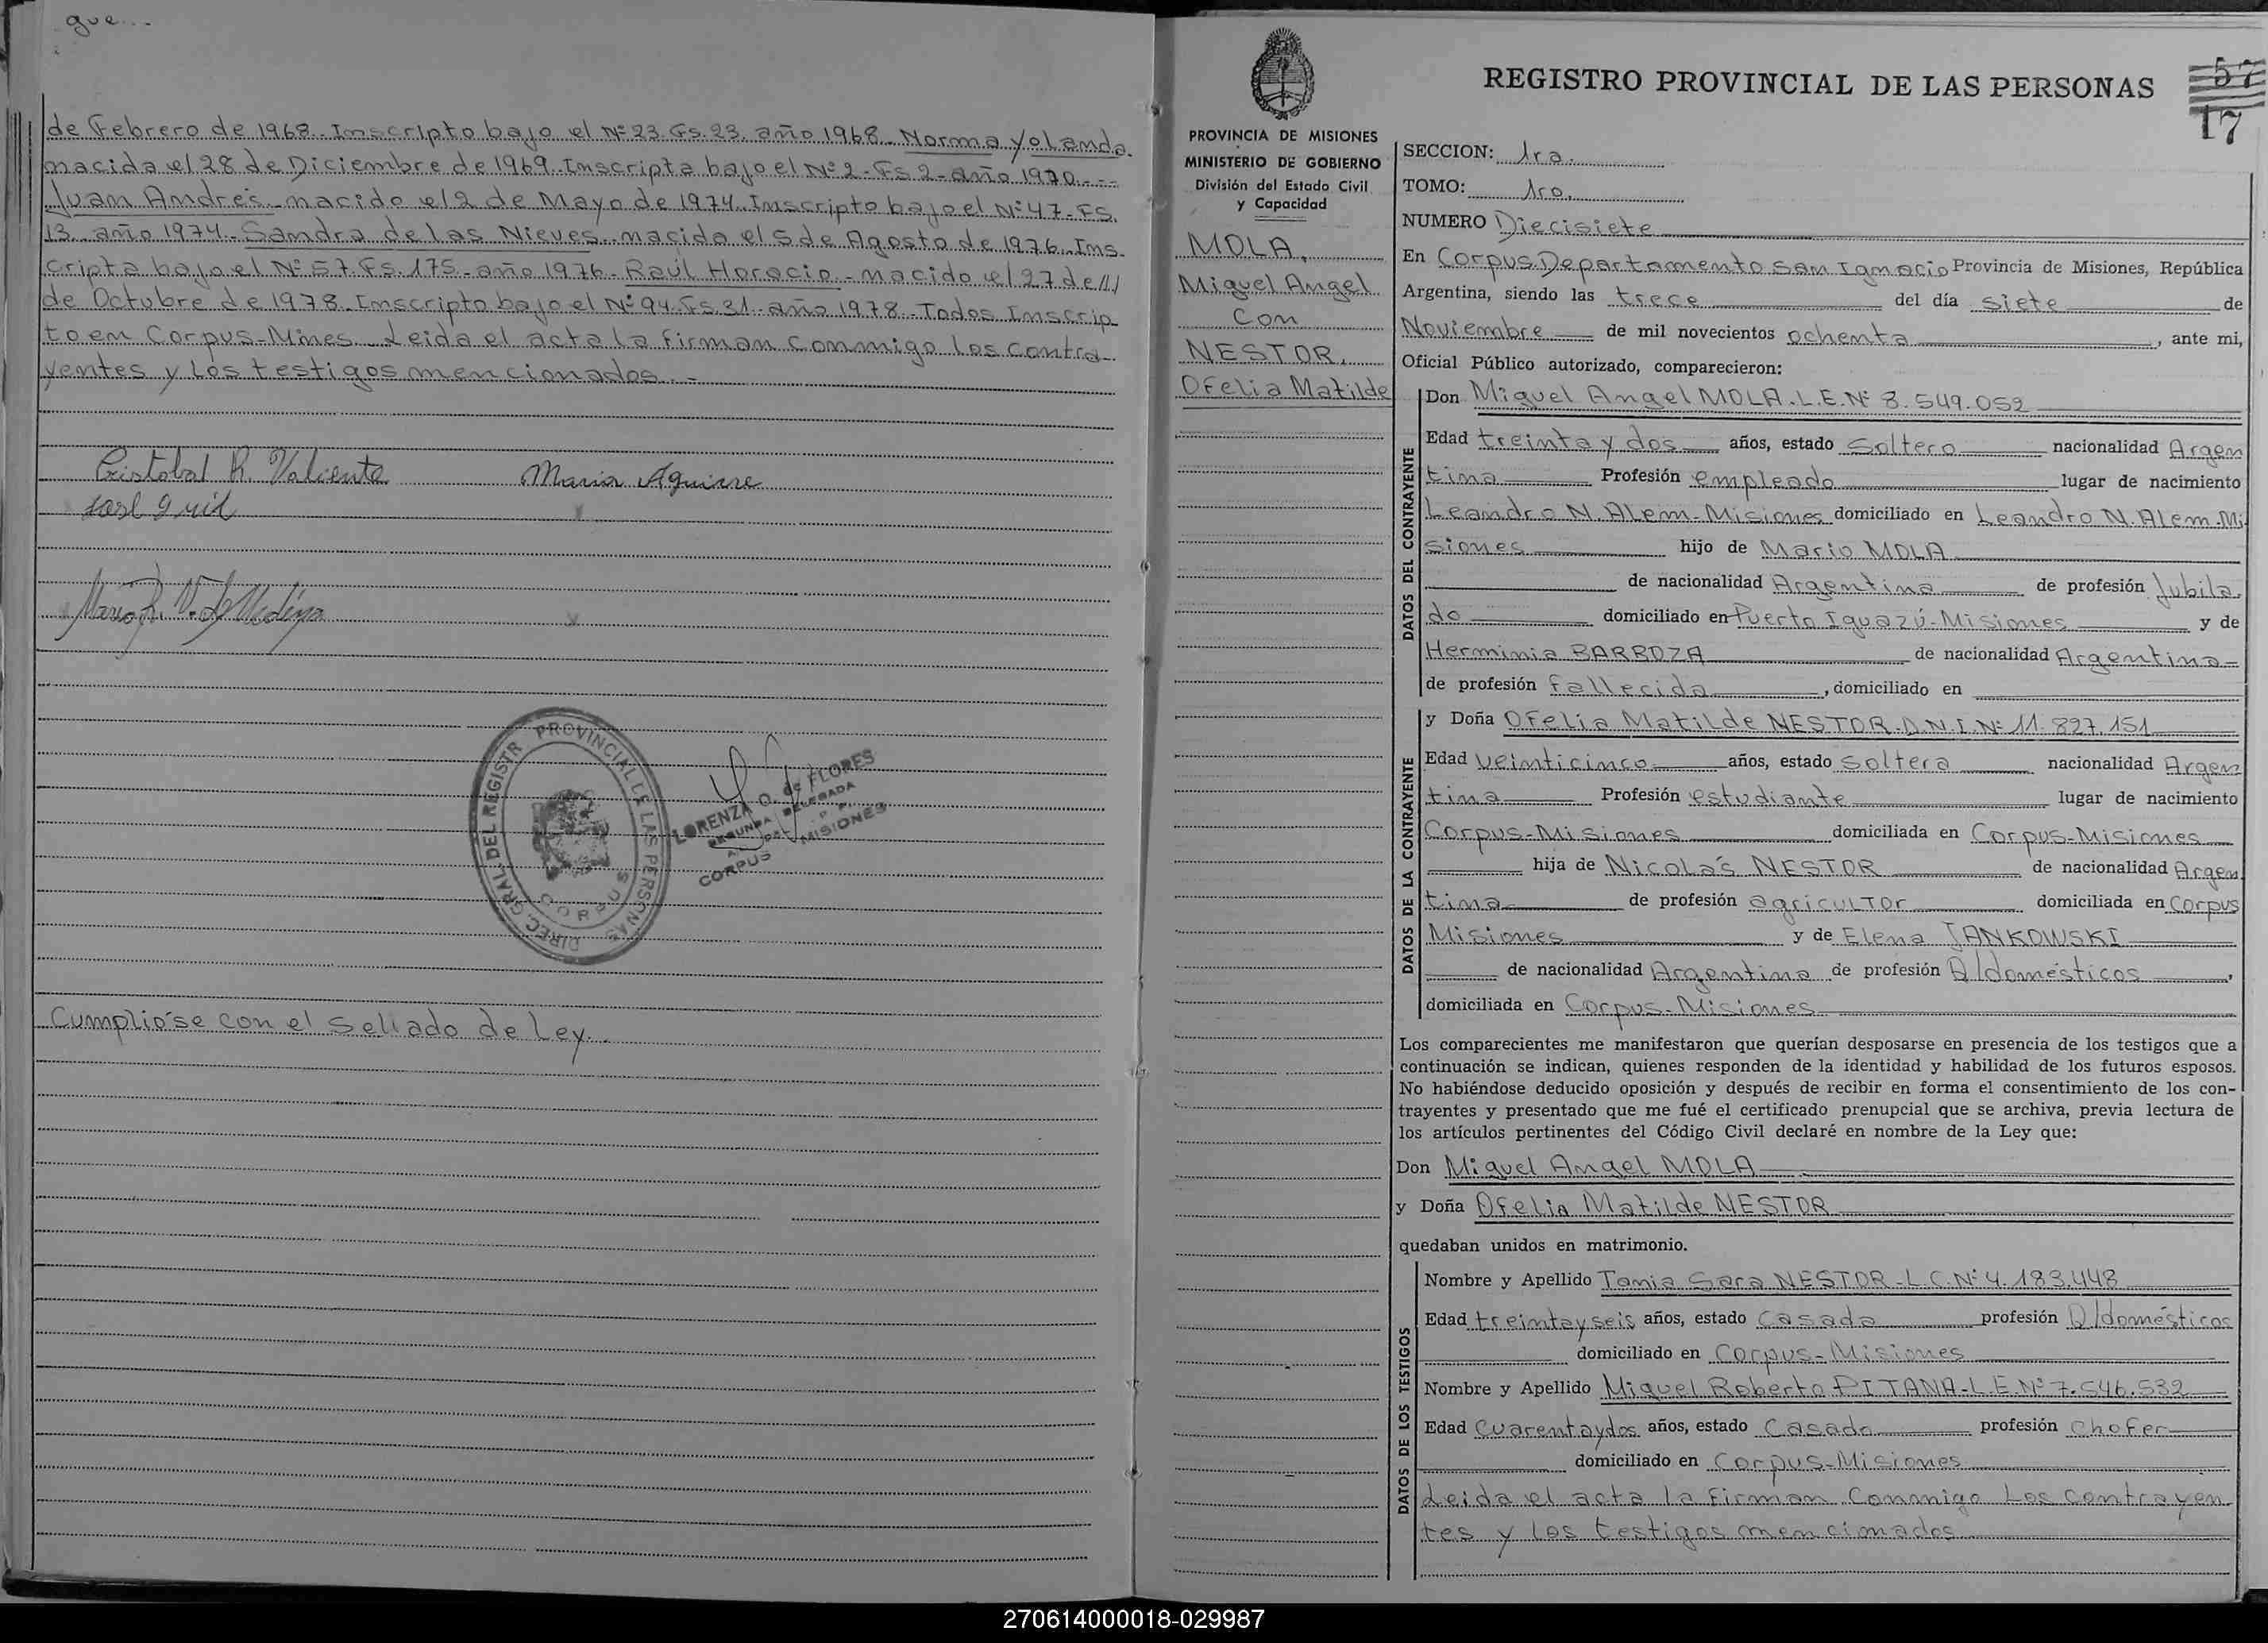 que...
de Febrero de 1968. Inscripto bajo el Nº 23. Fs. 23. año 1968. Norma Yolanda.
nacida el 28 de Diciembre de 1969. Inscripta bajo el Nº 2 - Fs 2 - año 1970. ---
Juan Andrés - nacido el 2 de Mayo de 1974. Inscripto bajo el Nº 47 - Fs.
13. año 1974. Sandra de las Nieves. nacida el 5 de Agosto de 1976. Ins.
cripta bajo el Nº 57. Fs. 175 - año 1976 - Raúl Horacio - nacido el 27 de///
de Octubre de 1978. Inscripto bajo el Nº 94. Fs. 31. año 1978. Todos Inscrip
to en Corpus-Mnes. Leida el acta la firman conmigo los contra-
yentes y los testigos mencionados. -
Cristobal R. Valiente   Maria Aguirre
DIREC. GRAL. DEL REGISTR PROVINCIAL DE LAS PERSONAS
CORPUS
LORENZA O. de FLORES
SEGUNDA DELEGADA
CORPUS MISIONES
Cumplióse con el sellado de Ley.
PROVINCIA DE MISIONES
MINISTERIO DE GOBIERNO
División del Estado Civil
y Capacidad
MOLA,
Miguel Angel
Con
NESTOR,
Ofelia Matilde
REGISTRO PROVINCIAL DE LAS PERSONAS
57
17
SECCION: 1ra.
TOMO: 1ro.
NUMERO Diecisiete
En Corpus Departamento San Ignacio Provincia de Misiones, República
Argentina, siendo las trece del día siete de
Noviembre de mil novecientos ochenta, ante mi,
Oficial Público autorizado, comparecieron:
DATOS DEL CONTRAYENTE
Don Miguel Angel MOLA. L.E. Nº 8.549.052
Edad treinta y dos años, estado Soltero nacionalidad Argen
tina Profesión empleado lugar de nacimiento
Leandro N. Alem-Misiones domiciliado en Leandro N. Alem. Mi
siones hijo de Mario MOLA
de nacionalidad Argentina de profesión Jubila.
do domiciliado en Puerto Iguazú-Misiones y de
Herminia BARBOZA de nacionalidad Argentina
de profesión fallecida, domiciliado en
DATOS DE LA CONTRAYENTE
y Doña Ofelia Matilde NESTOR. D.N.I. Nº 11.827.151
Edad veinticinco años, estado Soltera nacionalidad Argen
tina Profesión estudiante lugar de nacimiento
Corpus-Misiones domiciliada en Corpus-Misiones
hija de Nicolás NESTOR de nacionalidad Argen
tina de profesión agricultor domiciliada en Corpus
Misiones y de Elena JANKOWSKI
de nacionalidad Argentina de profesión Q/domésticos,
domiciliada en Corpus-Misiones
Los comparecientes me manifestaron que querían desposarse en presencia de los testigos que a
continuación se indican, quienes responden de la identidad y habilidad de los futuros esposos.
No habiéndose deducido oposición y después de recibir en forma el consentimiento de los con-
trayentes y presentado que me fué el certificado prenupcial que se archiva, previa lectura de
los artículos pertinentes del Código Civil declaré en nombre de la Ley que:
Don Miguel Angel MOLA
y Doña Ofelia Matilde NESTOR
quedaban unidos en matrimonio.
DATOS DE LOS TESTIGOS
Nombre y Apellido Tania Sara NESTOR - L.C. Nº 4.183.448
Edad treinta y seis años, estado Casada profesión Q/domésticos
domiciliado en Corpus-Misiones
Nombre y Apellido Miguel Roberto PITANA - L.E. Nº 7.546.532
Edad Cuarenta y dos años, estado Casado profesión Chofer
domiciliado en Corpus-Misiones
Leida el acta la firman Conmigo Los contrayen
tes y los testigos mencionados
270614000018-029987